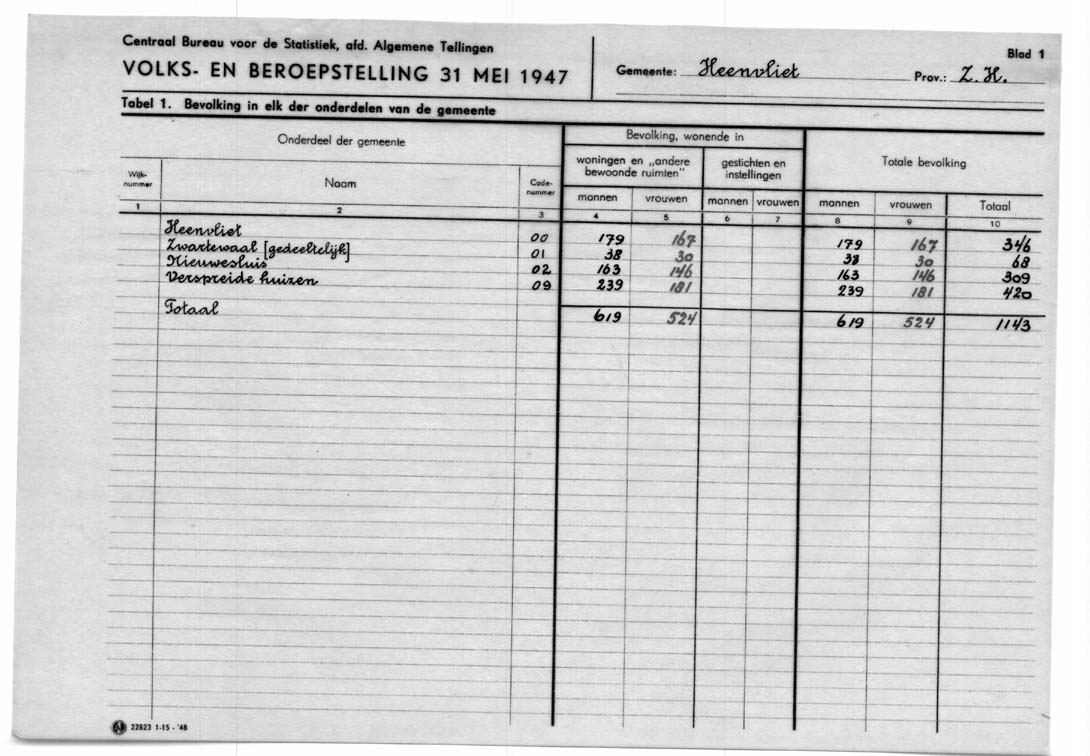 Centraal Bureau voor de Statistiek, afd. Algemene Tellingen
VOLKS- EN BEROEPSTELLING 31 MEI 1947
Gemeente: Heenvliet
Prov.: Z. H.
Blad 1
Tabel 1. Bevolking in elk der onderdelen van de gemeente
Onderdeel der gemeente
Bevolking, wonende in
Totale bevolking
Wijk-
nummer
Naam
Code-
nummer
woningen en „andere
bewoonde ruimten"
gestichten en
instellingen
mannen vrouwen mannen vrouwen mannen vrouwen Totaal
1 2 3 4 5 6 7 8 9 10
Heenvliet 00 179 167 179 167 346
Zwartewaal [gedeeltelijk] 01 38 30 38 30 68
Nieuwesluis 02 163 146 163 146 309
Verspreide huizen 09 239 181 239 181 420
Totaal 619 524 619 524 1143
22823 1-15 - '48